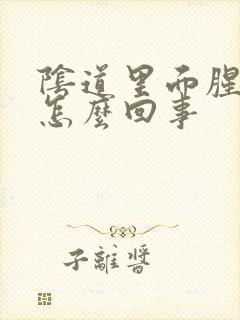 陰道里而腥
怎麼回事
子離醬